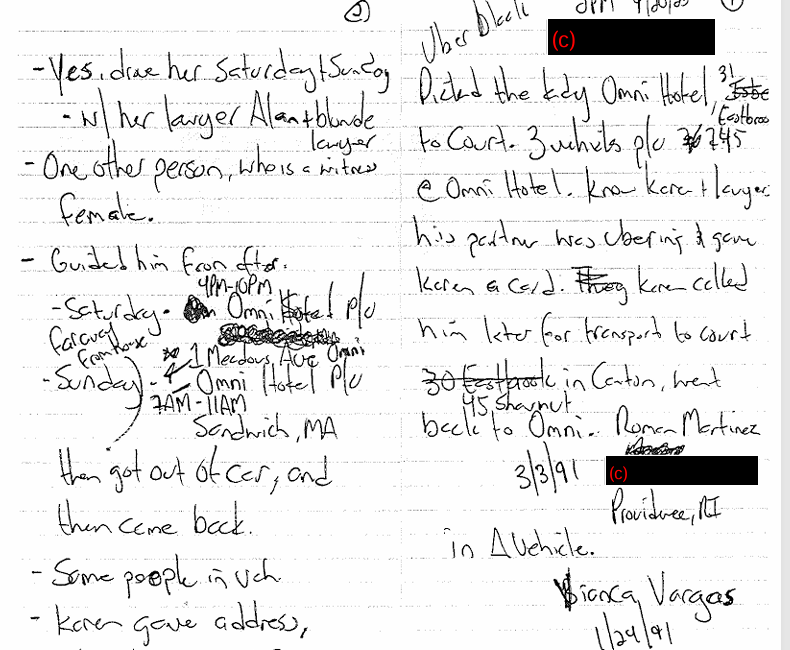 ①
Uber black
(c)
Picked the lady Omni Hotel, 31
Eastbroo
to Court. 3 vehicles p/u 245
@ Omni Hotel. Know Karen + lawyer
his partner was Ubering & gave
Karen a card. They Karen called
him later for transport to court
30 Eastbrook in Canton, went
45 Shawmut
back to Omni. Roman Martinez
3/3/91 (c)
Providence, RI
in Δ Vehicle.
Bianca Vargas
1/24/91
②
- Yes, drove her Saturday + Sunday
- w/ her lawyer Alan + blonde
lawyer
- One other person, who is a witness
female.
- Guided him from after.
4PM-10PM
- Saturday - Omni Hotel P/U
faraway
from house
1 Meadows Ave Omni
- Sunday - Omni Hotel P/U
7AM-11AM
Sandwich, MA
then got out of car, and
then came back.
- Same people in veh
- Karen gave address,